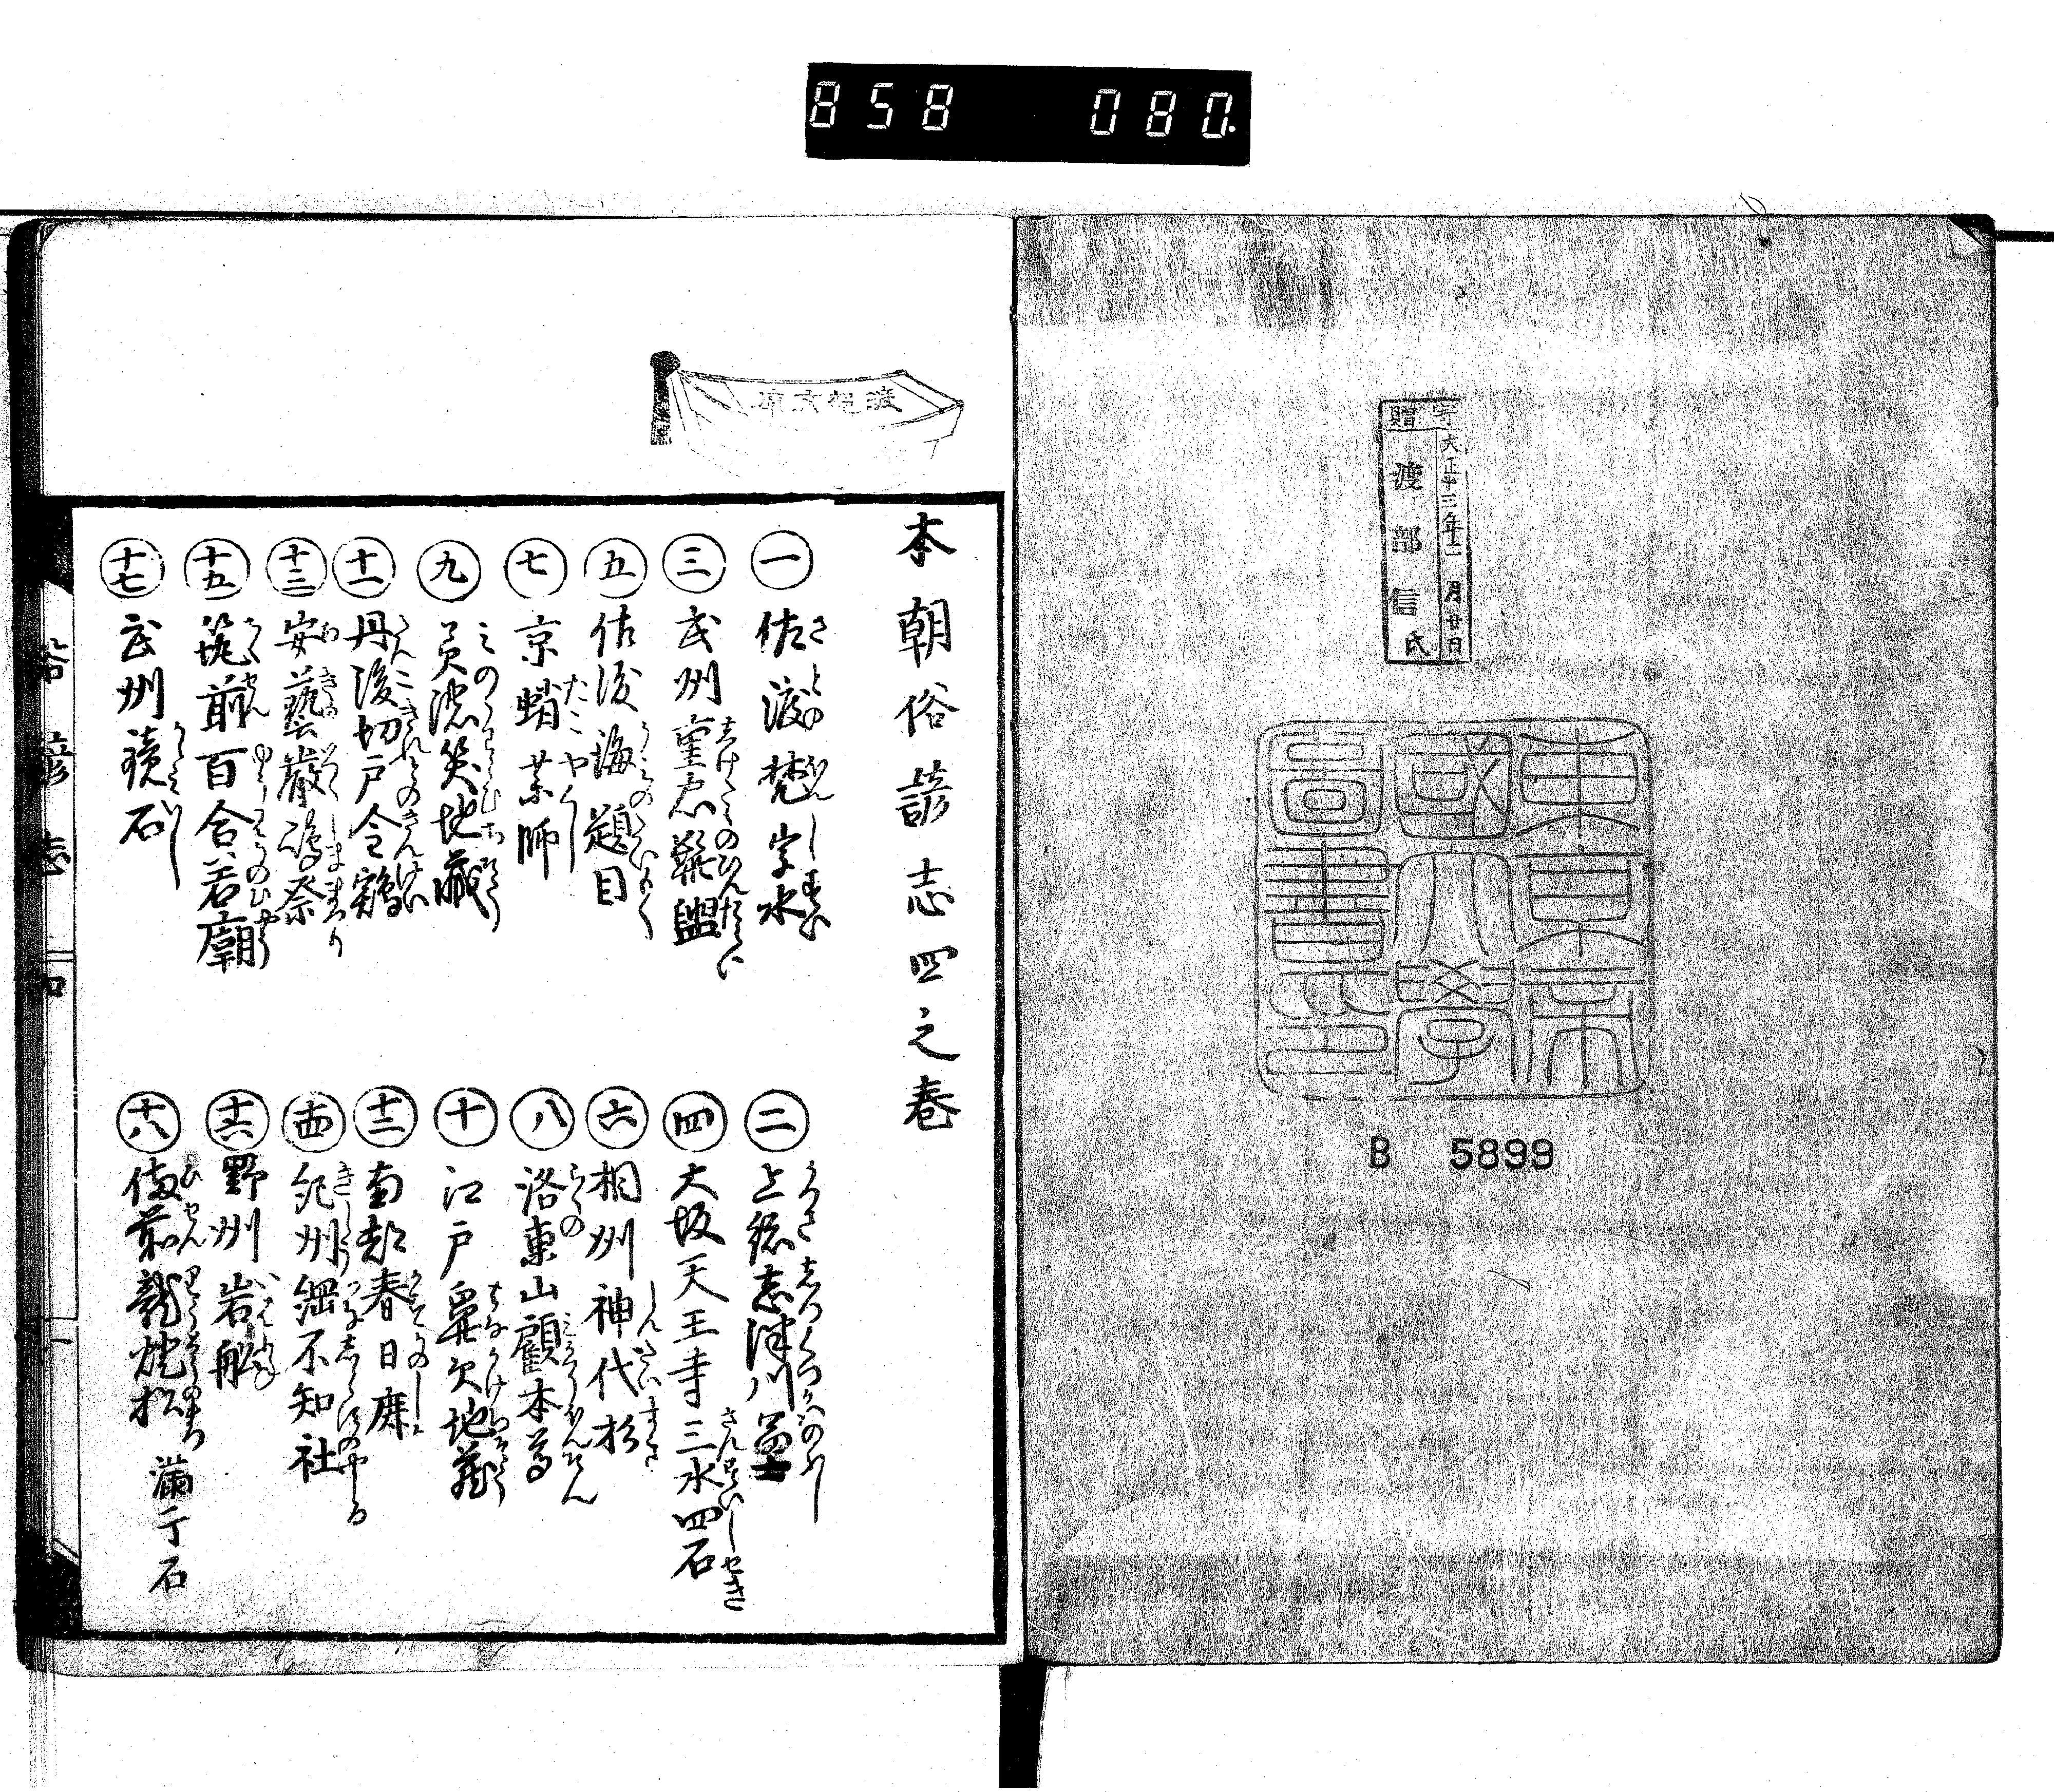 858 080.
寄贈
大正十三年十二月廿日
渡部信氏
東京帝國大學圖書印
B 5899
渡部文庫
本朝俗諺志四之巻
一 佐渡梵字水
二 上総志津川墨
三 武州重忠鬢盥
四 大坂天王寺三水四石
五 佐渡海題目
六 相州神代杉
七 京蛸薬師
八 洛東山顧本尊
九 美濃笑地蔵
十 江戸鼻欠地蔵
十一 丹後切戸金鶏
十二 南都春日鹿
十三 安藝嚴嶋祭
十四 紀州綱不知社
十五 筑前百合若廟
十六 野州岩船
十七 武州鏡石
十八 備前龍燈松
満干石
俗諺志